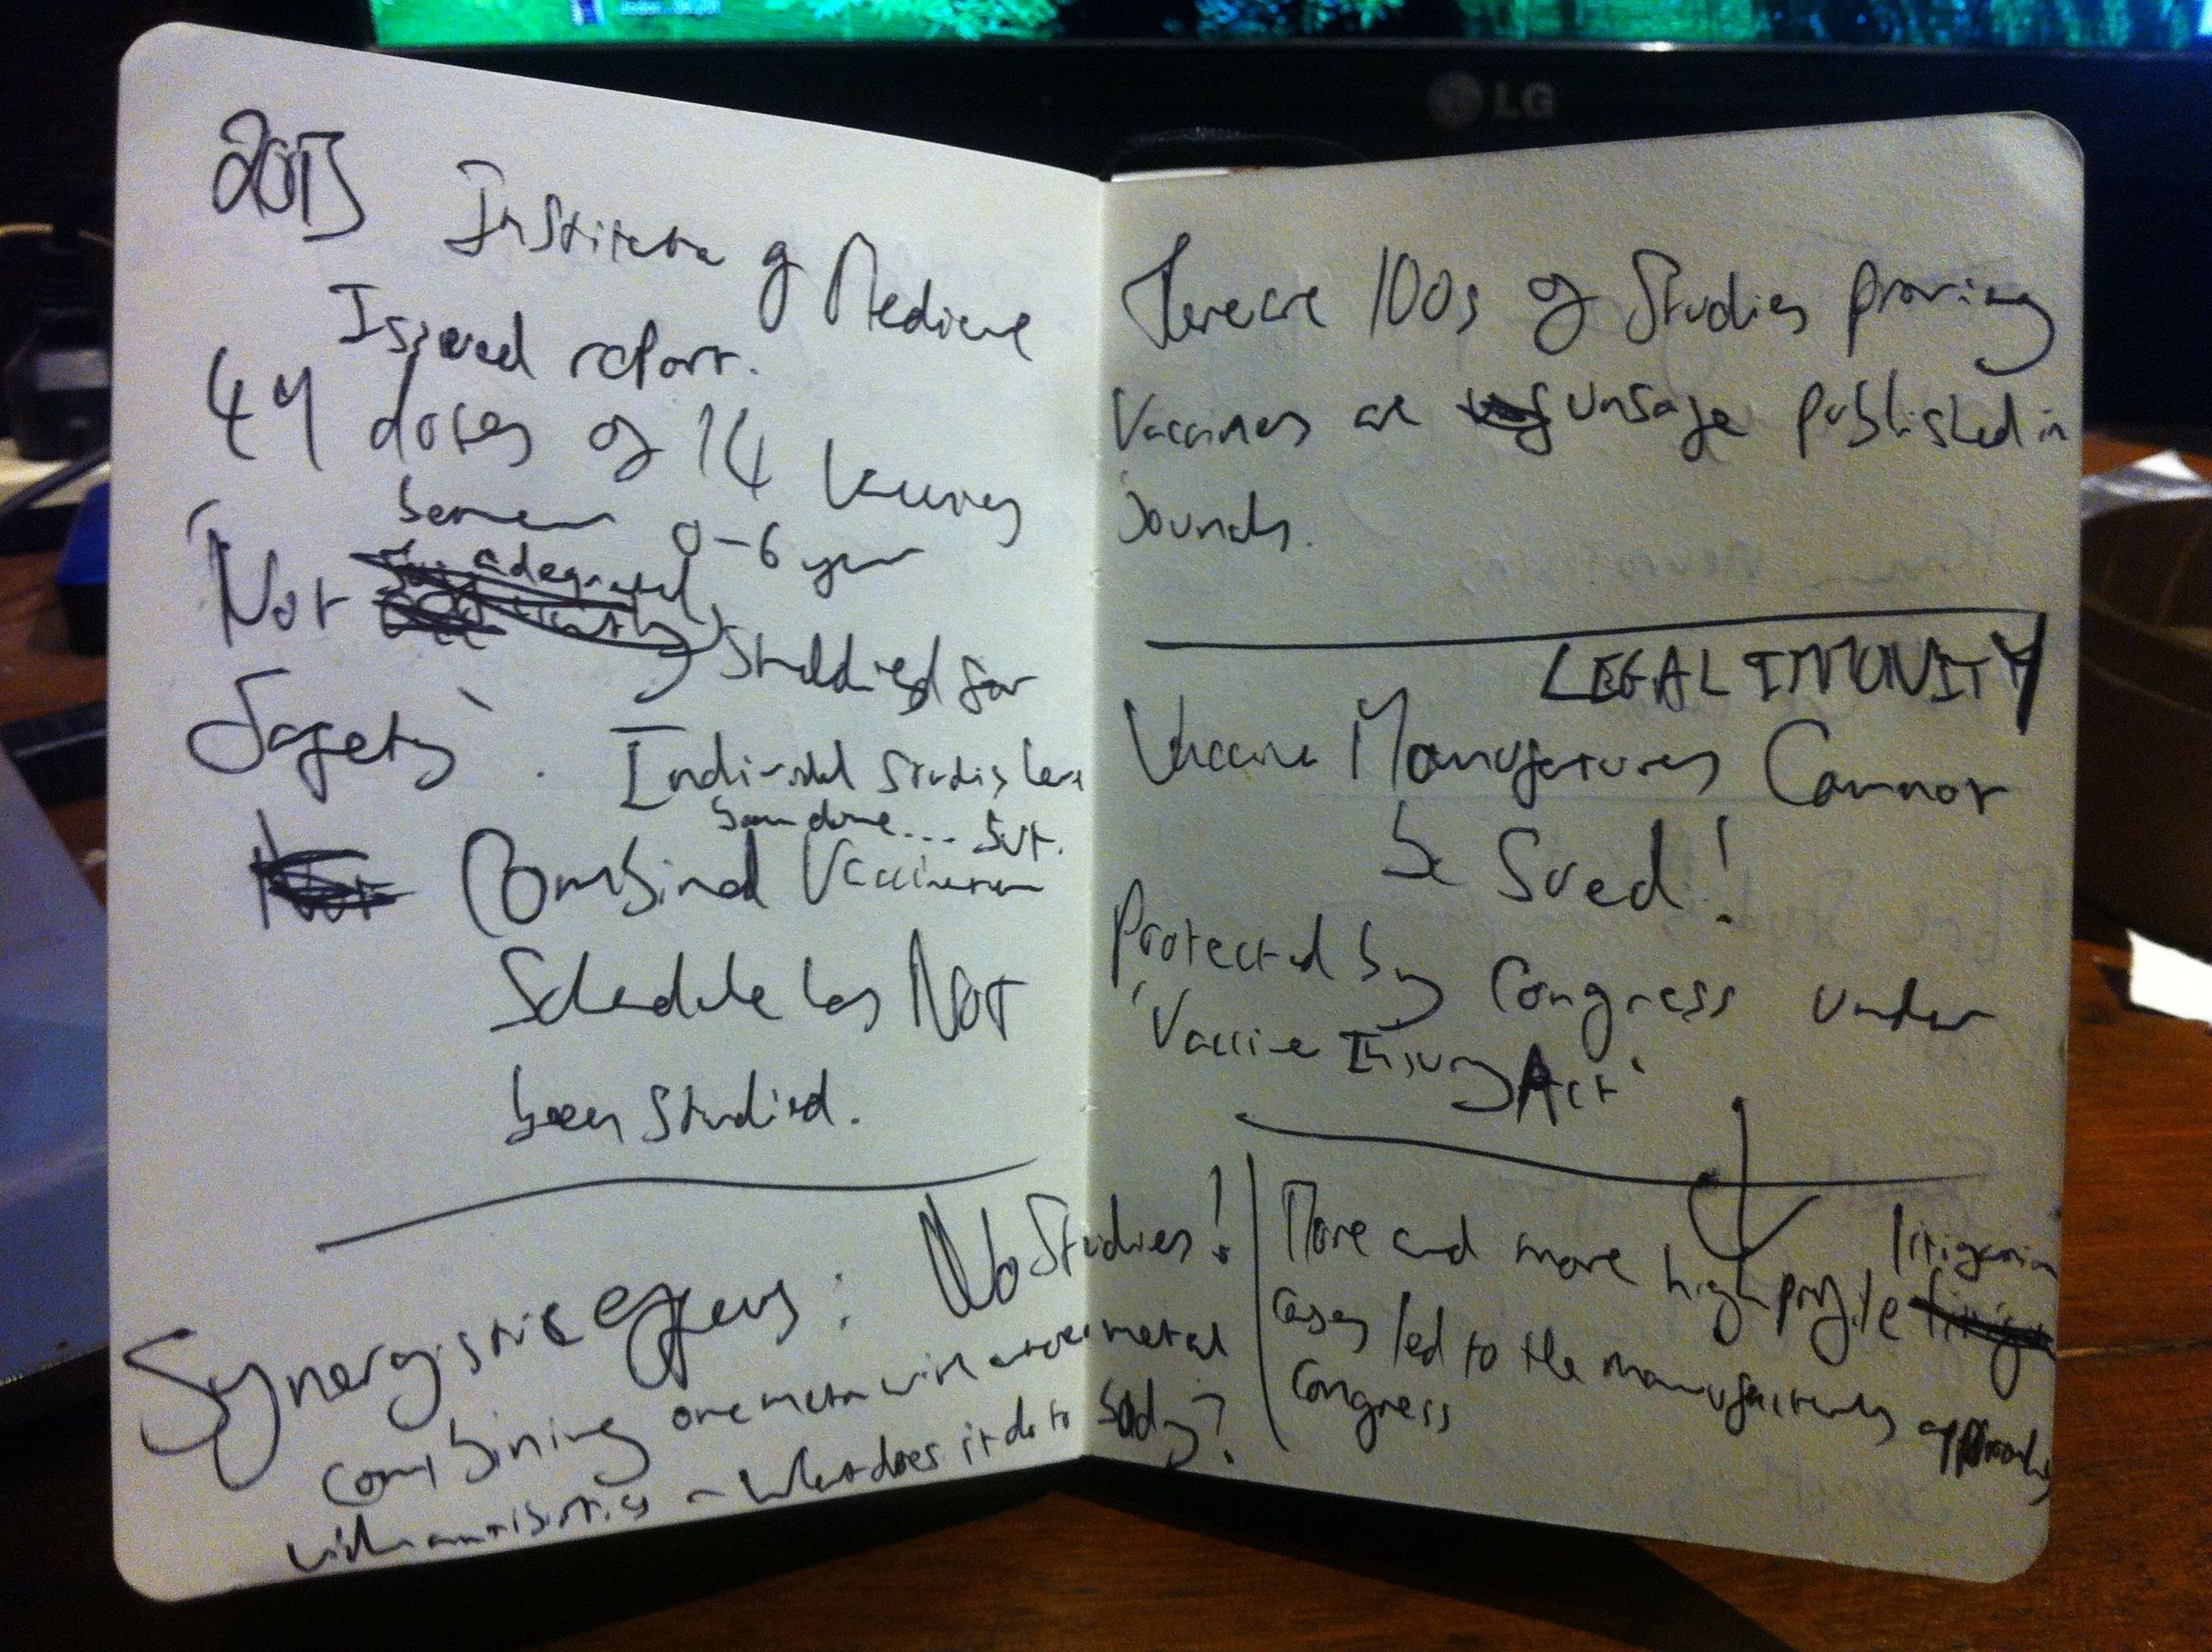 LG
2013
Institute of Medicine
Issued report.
49 doses of 14 Vaccines
between 0-6 year
'Not adequately studdied for
Safety'.
Individal studies have
been done... but.
Combined Vaccination
Schedule has NOT
been studied.
Synergistic effects: No Studies!
combining one metal with another metal
with antibiotics - what does it do to body?
There are 100s of Studies proving
Vaccines are unsafe published in
Journals.
LEGAL IMMUNITY
Vaccine Manufacturers Cannot
be Sued!
Protected by Congress under
'Vaccine Injury Act'
More and more high profile litigation
cases led to the manufacturers approaching
Congress